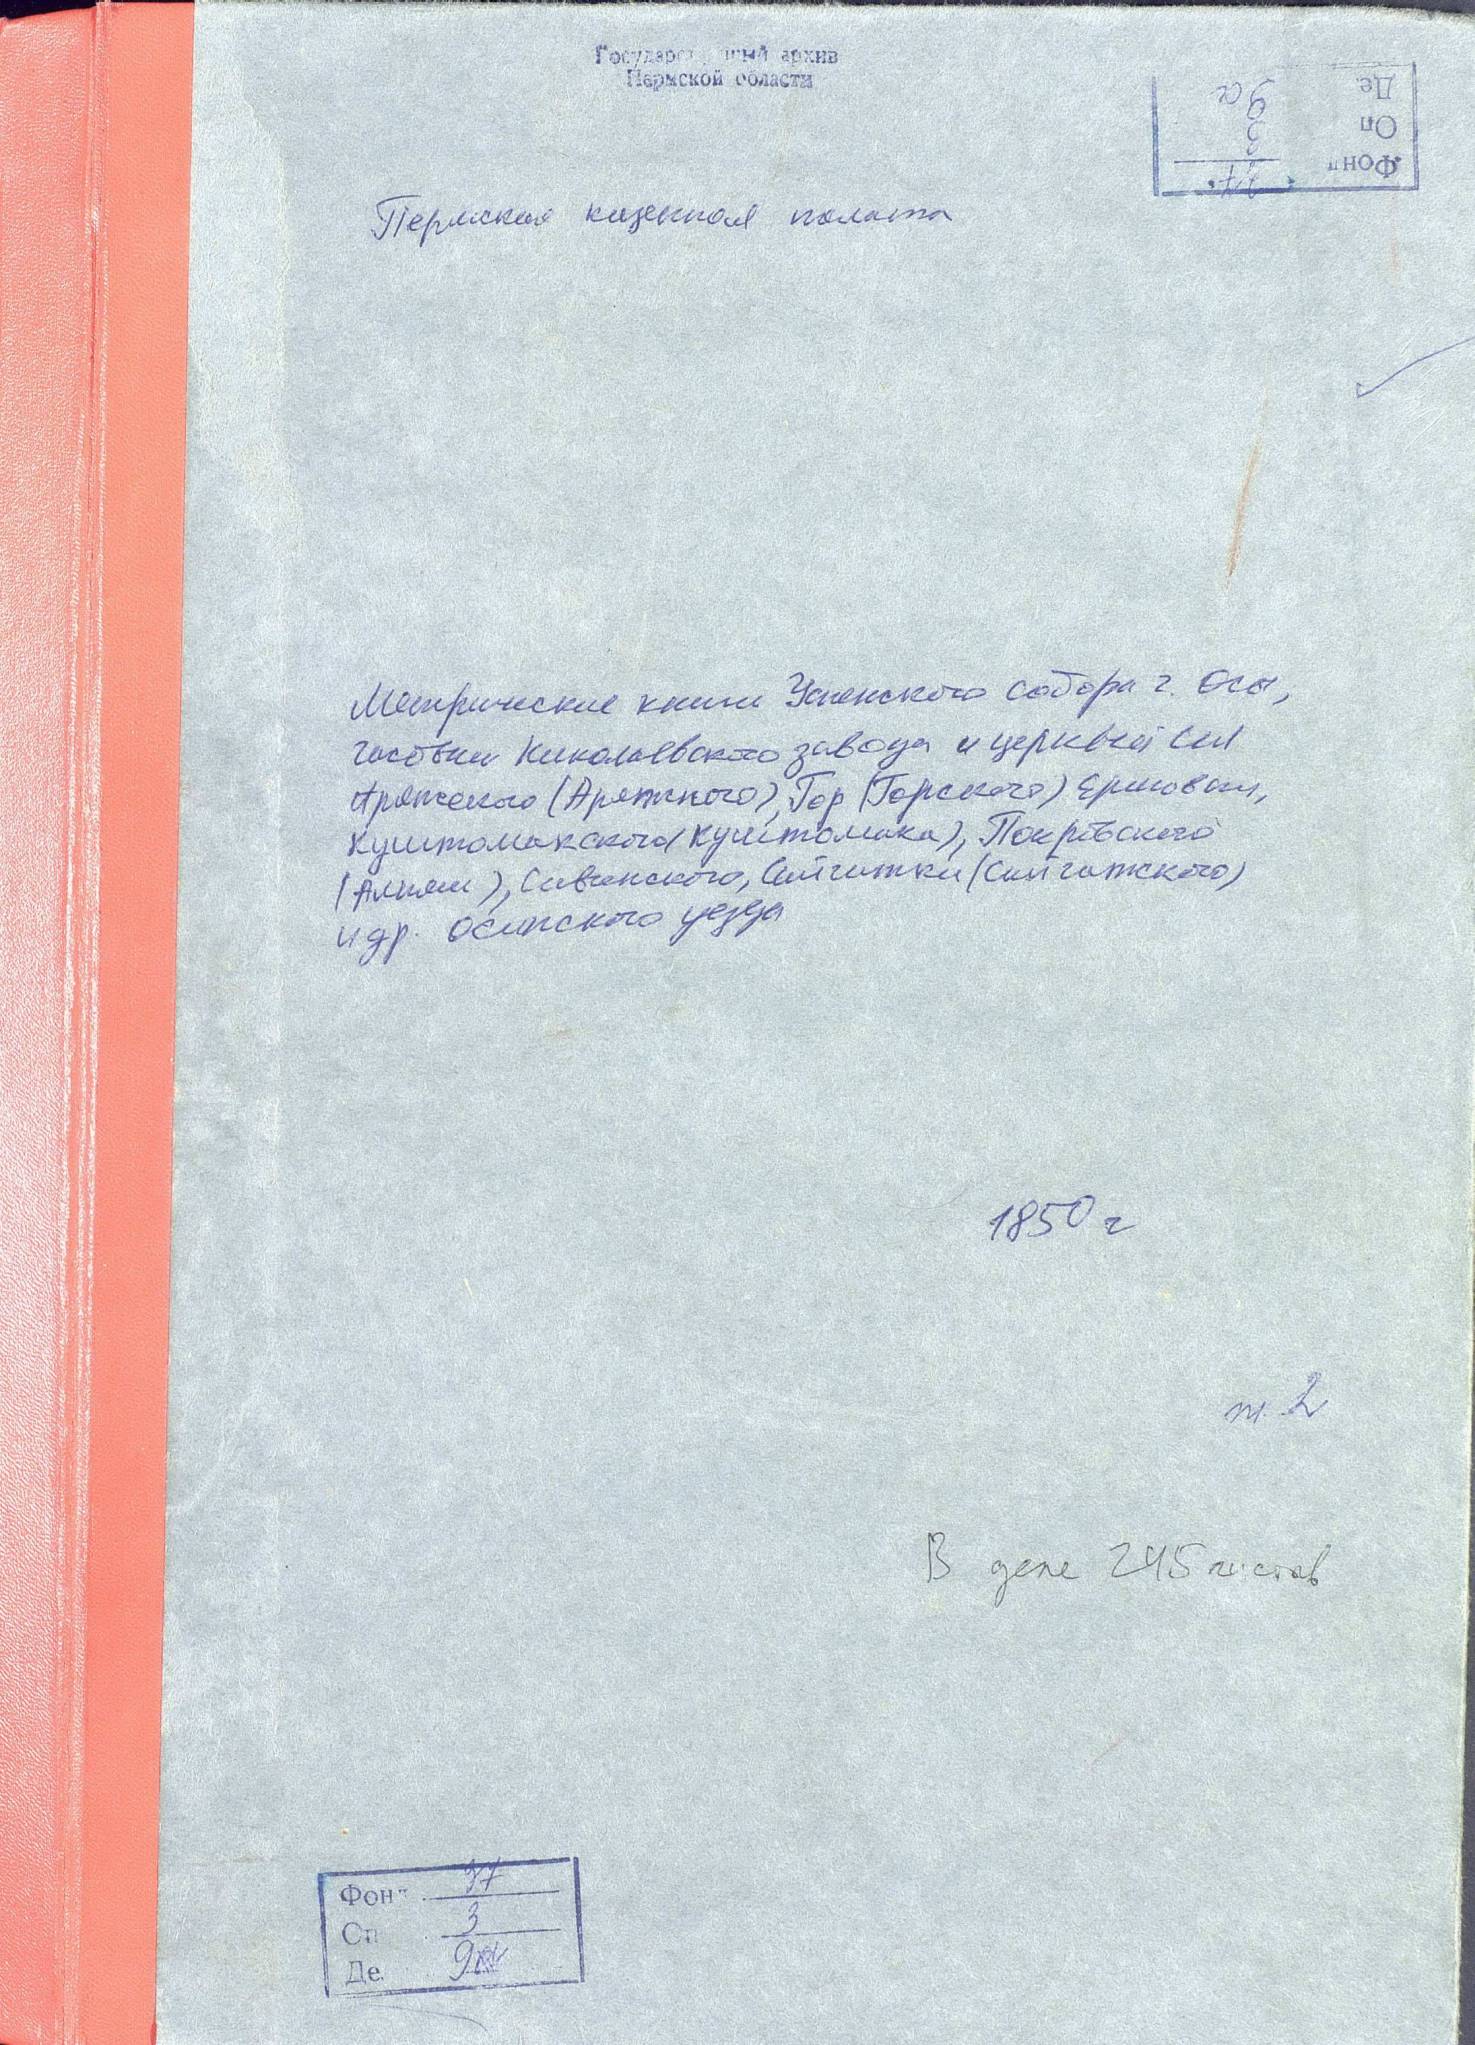 Государственный архив
Пермской области
Фонд 37.
Оп 3
Де 9а
Пермская казенная палата
Метрические книги Успенского собора г. Осы,
часовни Николаевского завода и церквей сел
Аряжского (Аряжного), Гор (Горского) Ершовки,
Куштомакского (Куштомака), Покровского
(Алтын), Савинского, Сайгатки (Сайгатского)
и др. Осинского уезда
1850 г
т. 2
В деле 245 листов
Фонд 37
Оп 3
Де. 9а